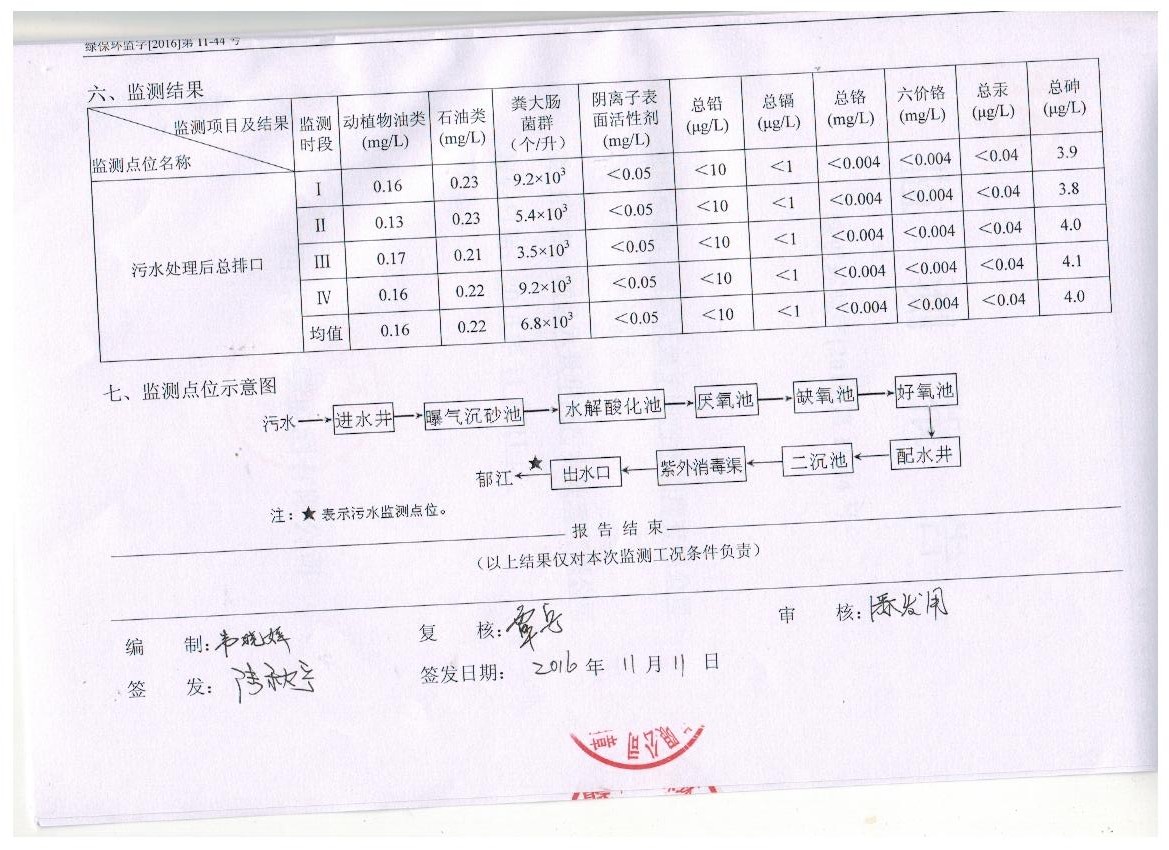 绿保环监字[2016]第 11-44 号
六、监测结果
监测项目及结果 监测点位名称 监测时段 动植物油类(mg/L) 石油类(mg/L) 粪大肠菌群(个/升) 阴离子表面活性剂(mg/L) 总铅(μg/L) 总镉(μg/L) 总铬(mg/L) 六价铬(mg/L) 总汞(μg/L) 总砷(μg/L)
污水处理后总排口
I 0.16 0.23 9.2×10³ <0.05 <10 <1 <0.004 <0.004 <0.04 3.9
II 0.13 0.23 5.4×10³ <0.05 <10 <1 <0.004 <0.004 <0.04 3.8
III 0.17 0.21 3.5×10³ <0.05 <10 <1 <0.004 <0.004 <0.04 4.0
IV 0.16 0.22 9.2×10³ <0.05 <10 <1 <0.004 <0.004 <0.04 4.1
均值 0.16 0.22 6.8×10³ <0.05 <10 <1 <0.004 <0.004 <0.04 4.0
七、监测点位示意图
污水 进水井 曝气沉砂池 水解酸化池 厌氧池 缺氧池 好氧池
郁江 ★ 出水口 紫外消毒渠 二沉池 配水井
注：★表示污水监测点位。
报 告 结 束
（以上结果仅对本次监测工况条件负责）
编 制：韦晓辉 复 核：覃岳 审 核：潘发用
签 发： 签发日期： 2016 年 11 月 11 日
限公司